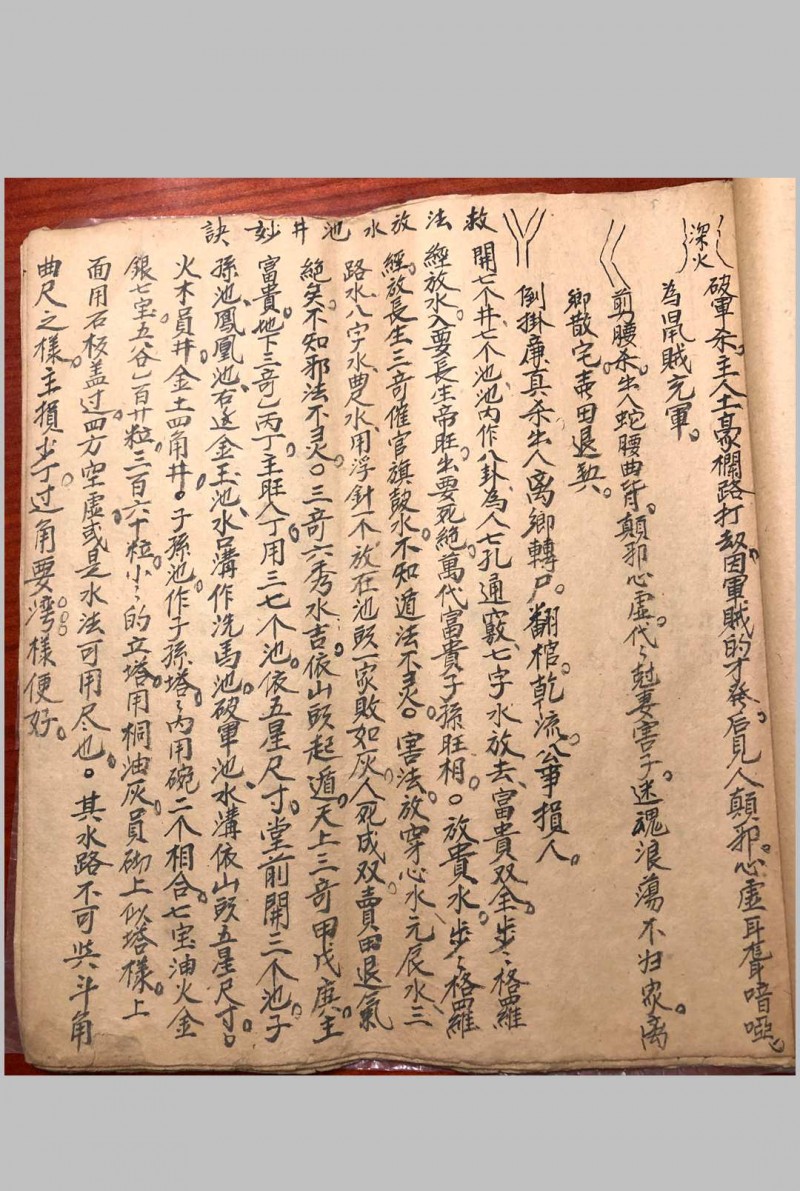 深火
破軍杀。主人土豪欄路打劫。因軍賊的才發。后見人顛邪。心虛耳聾喑啞。
為鼠賊充軍。
剪腰杀。出入蛇腰曲背。顛邪心虛。代〻尅妻害子。迷魂浪蕩不归家。离
鄉散宅賣田退契。
倒掛廉真杀出人离鄉轉户。翻棺。乾流。公事損人。
救法放水池井妙訣
開七个井七个池池内作八卦、為人七孔通竅、七字水放去、富貴双全。步〻格羅
經放水。入要長生帝旺。出要死絕。萬代富貴子孫旺相。放貴水。步〻格羅
經。放長生三奇催官旗鼓水。不知遁法不灵。害法。放穿心水、元辰水、三
路水、八字水、曲尺水、用浮針不放在池頭一家敗如灰。人死成双。賣田退氣
絕矣。不知邪法不灵。三奇六秀水吉。依山頭起遁。天上三奇甲戊庚。主
富貴。地下三奇乙丙丁主旺人丁用三七个池。依五星尺寸。堂前開三个池。子
孫池、鳳凰池、右邊金玉池、水口溝作洗馬池。破軍池、水溝依山頭五星尺寸。
火木員井金土四角井。子孫池。作子孫塔。〻内用碗二个相合。七宝油火金
銀七宝。五谷乙百廿粒。三百六十粒。小〻的立塔。用桐油灰員砌上似塔樣。上
面用石板盖过。四方空虛或是水法可用尽也。其水路不可與斗角
曲尺之樣。主損少丁。过角要灣樣便好。